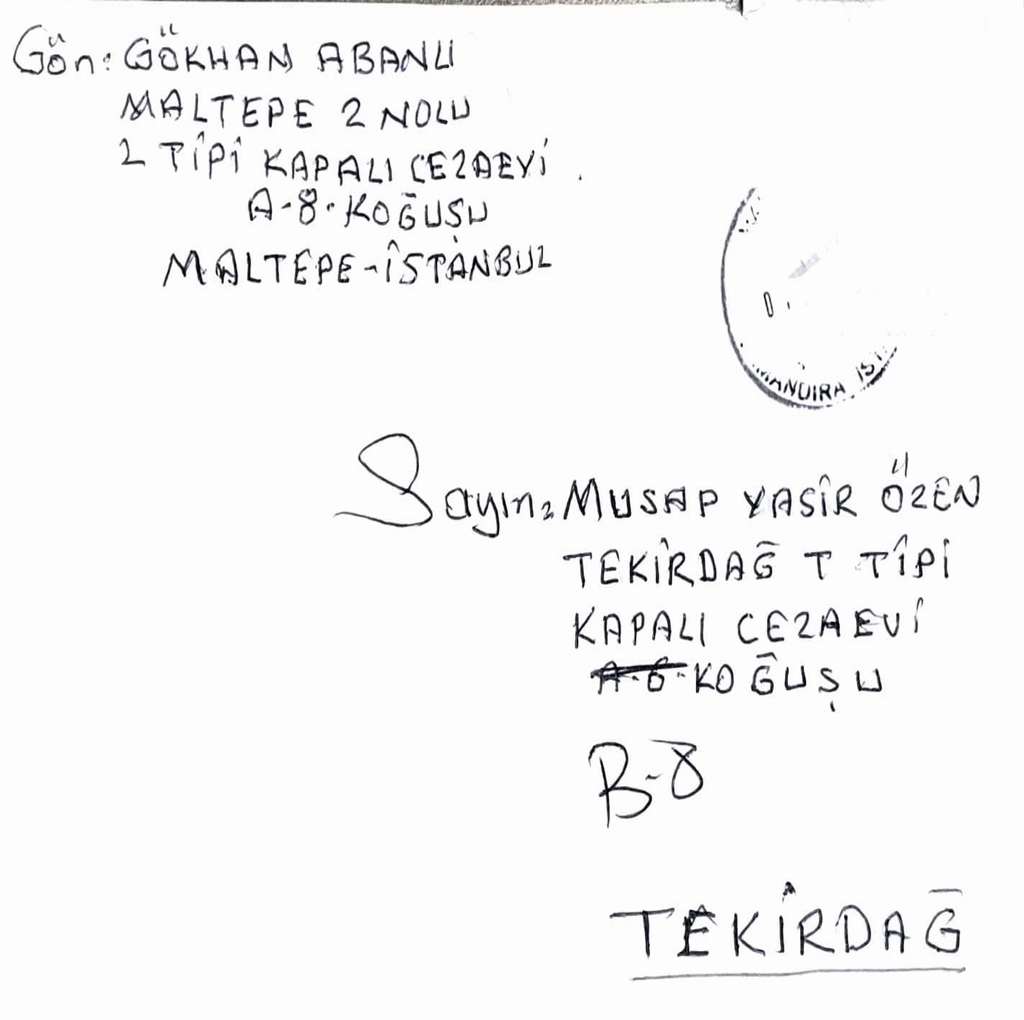 Gön: GÖKHAN ABANLI
MALTEPE 2 NOLU
L TİPİ KAPALI CEZAEVİ.
A-8-KOĞUŞU
MALTEPE-İSTANBUL
Sayın: MUSAP YASİR ÖZEN
TEKİRDAĞ T TİPİ
KAPALI CEZAEVİ
A-6-KOĞUŞU
B-8
TEKİRDAĞ